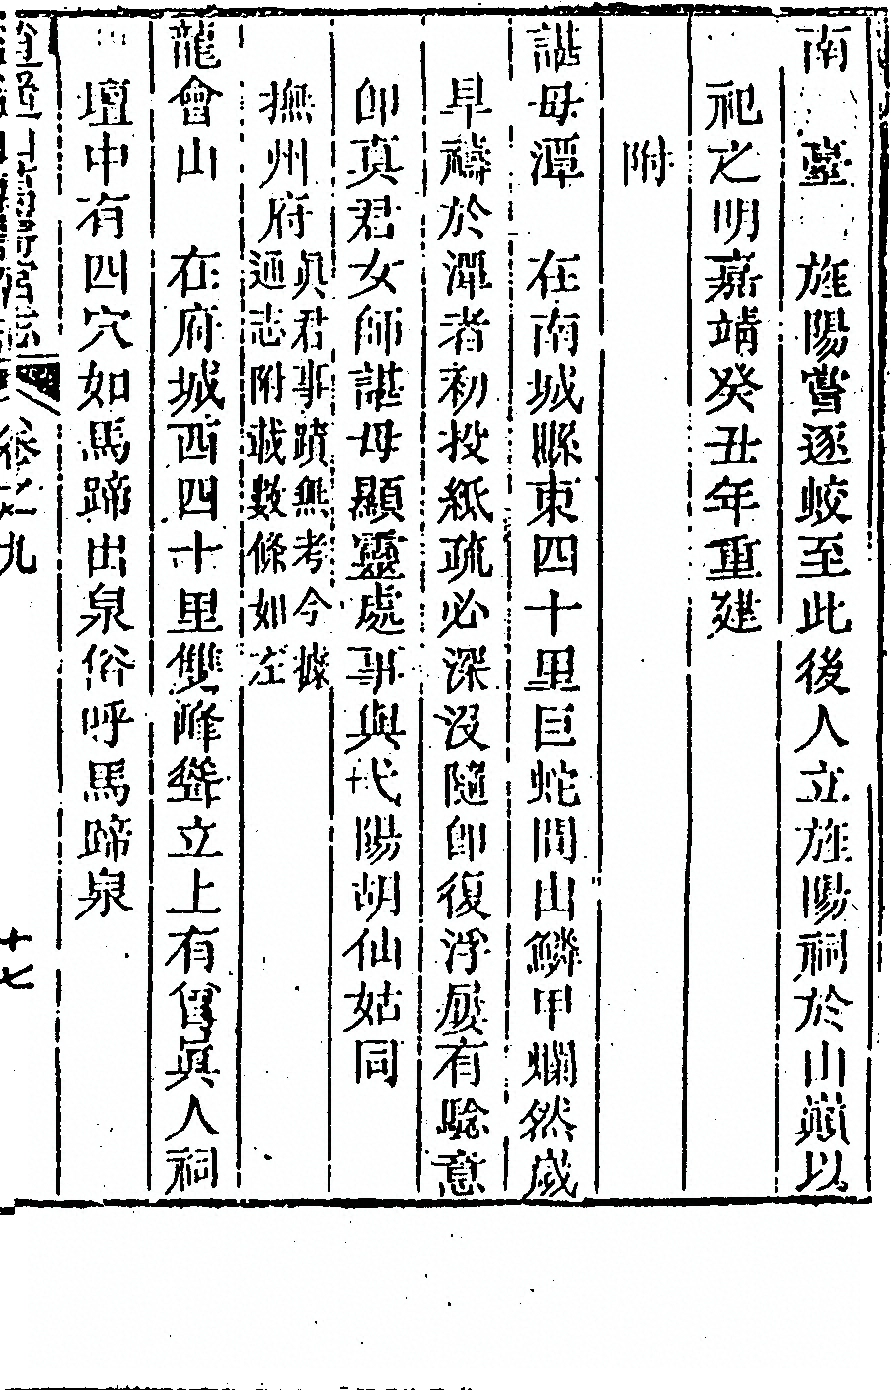 南臺 旌陽嘗逐蛟至此後人立旌陽祠於山巔以
祀之明嘉靖癸丑年重建
附
諶母潭 在南城縣東四十里巨蛇間出鱗甲爛然歲
旱禱於潭者初投紙疏必深沒隨即復浮屢有驗意
即真君女師諶母顯靈處事與弋陽胡仙姑同
撫州府
眞君事蹟無考今據
通志附載數條如左
龍會山 在府城西四十里雙峰聳立上有曾眞人祠
壇中有四穴如馬蹄出泉俗呼馬蹄泉
逍遙山萬壽宮志 卷之九
十七